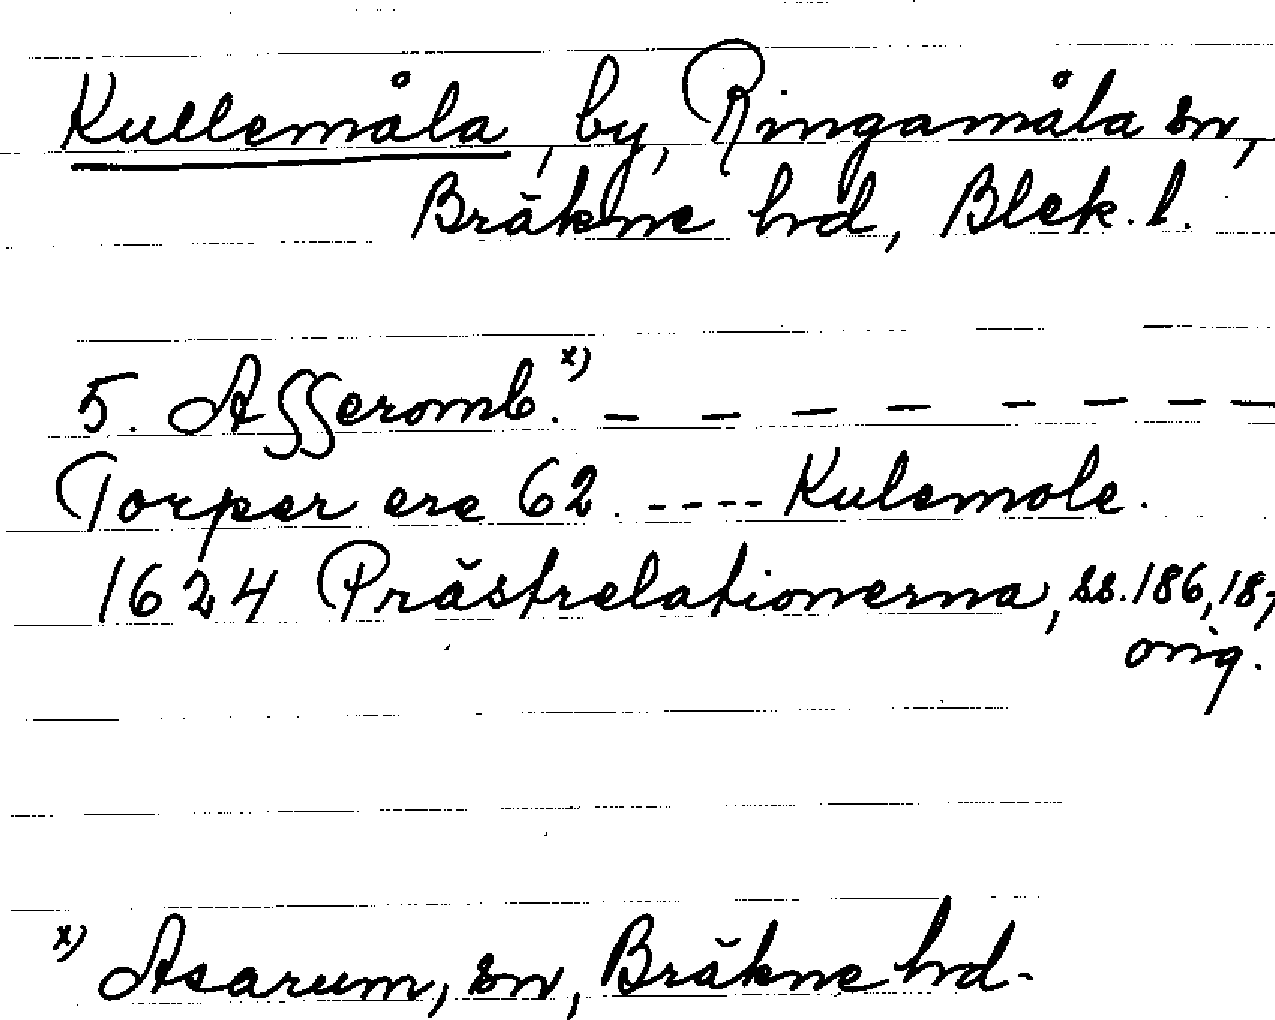 Kullemåla, by, Ringamåla sn,
Bräkne hd, Blek. l.
5. Asseromb.ˣ⁾ – – – – – – – –
Torper ere 62. ---- Kulemole.
1624 Prästrelationerna, ss. 186, 18
orig.
ˣ⁾ Asarum, sn, Bräkne hd.